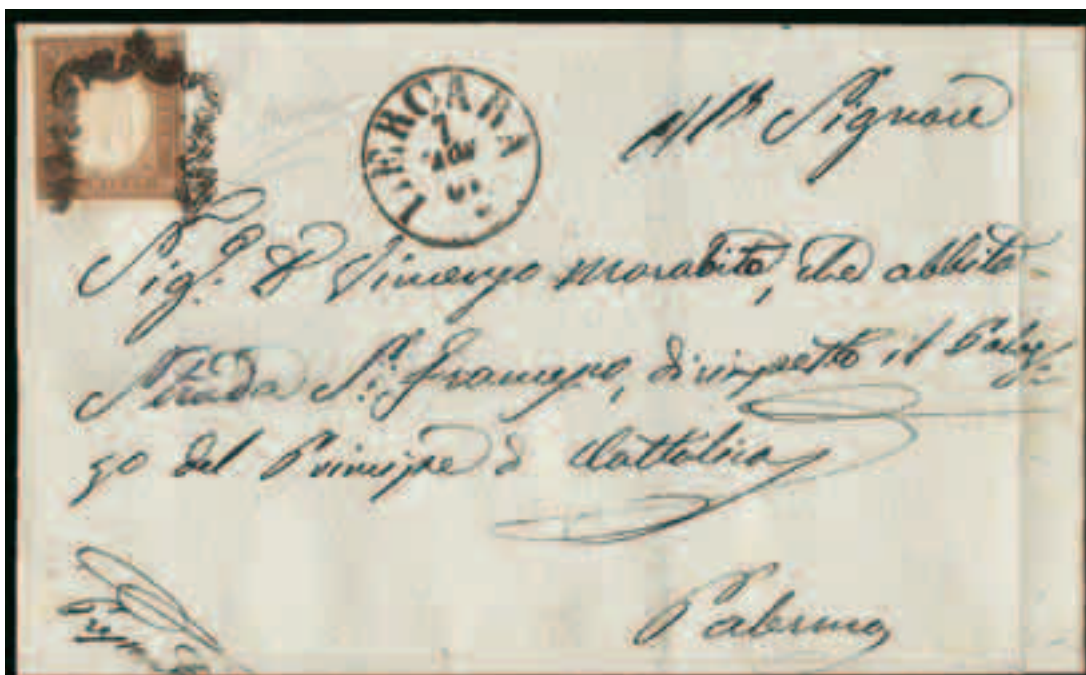 LERCARA
7
All Signore
Sig.e D Vincenzo Morabito, che abbita
Strada S. Francesco, dirimpetto il Palaz
zo del Principe d Cattolica
Palermo